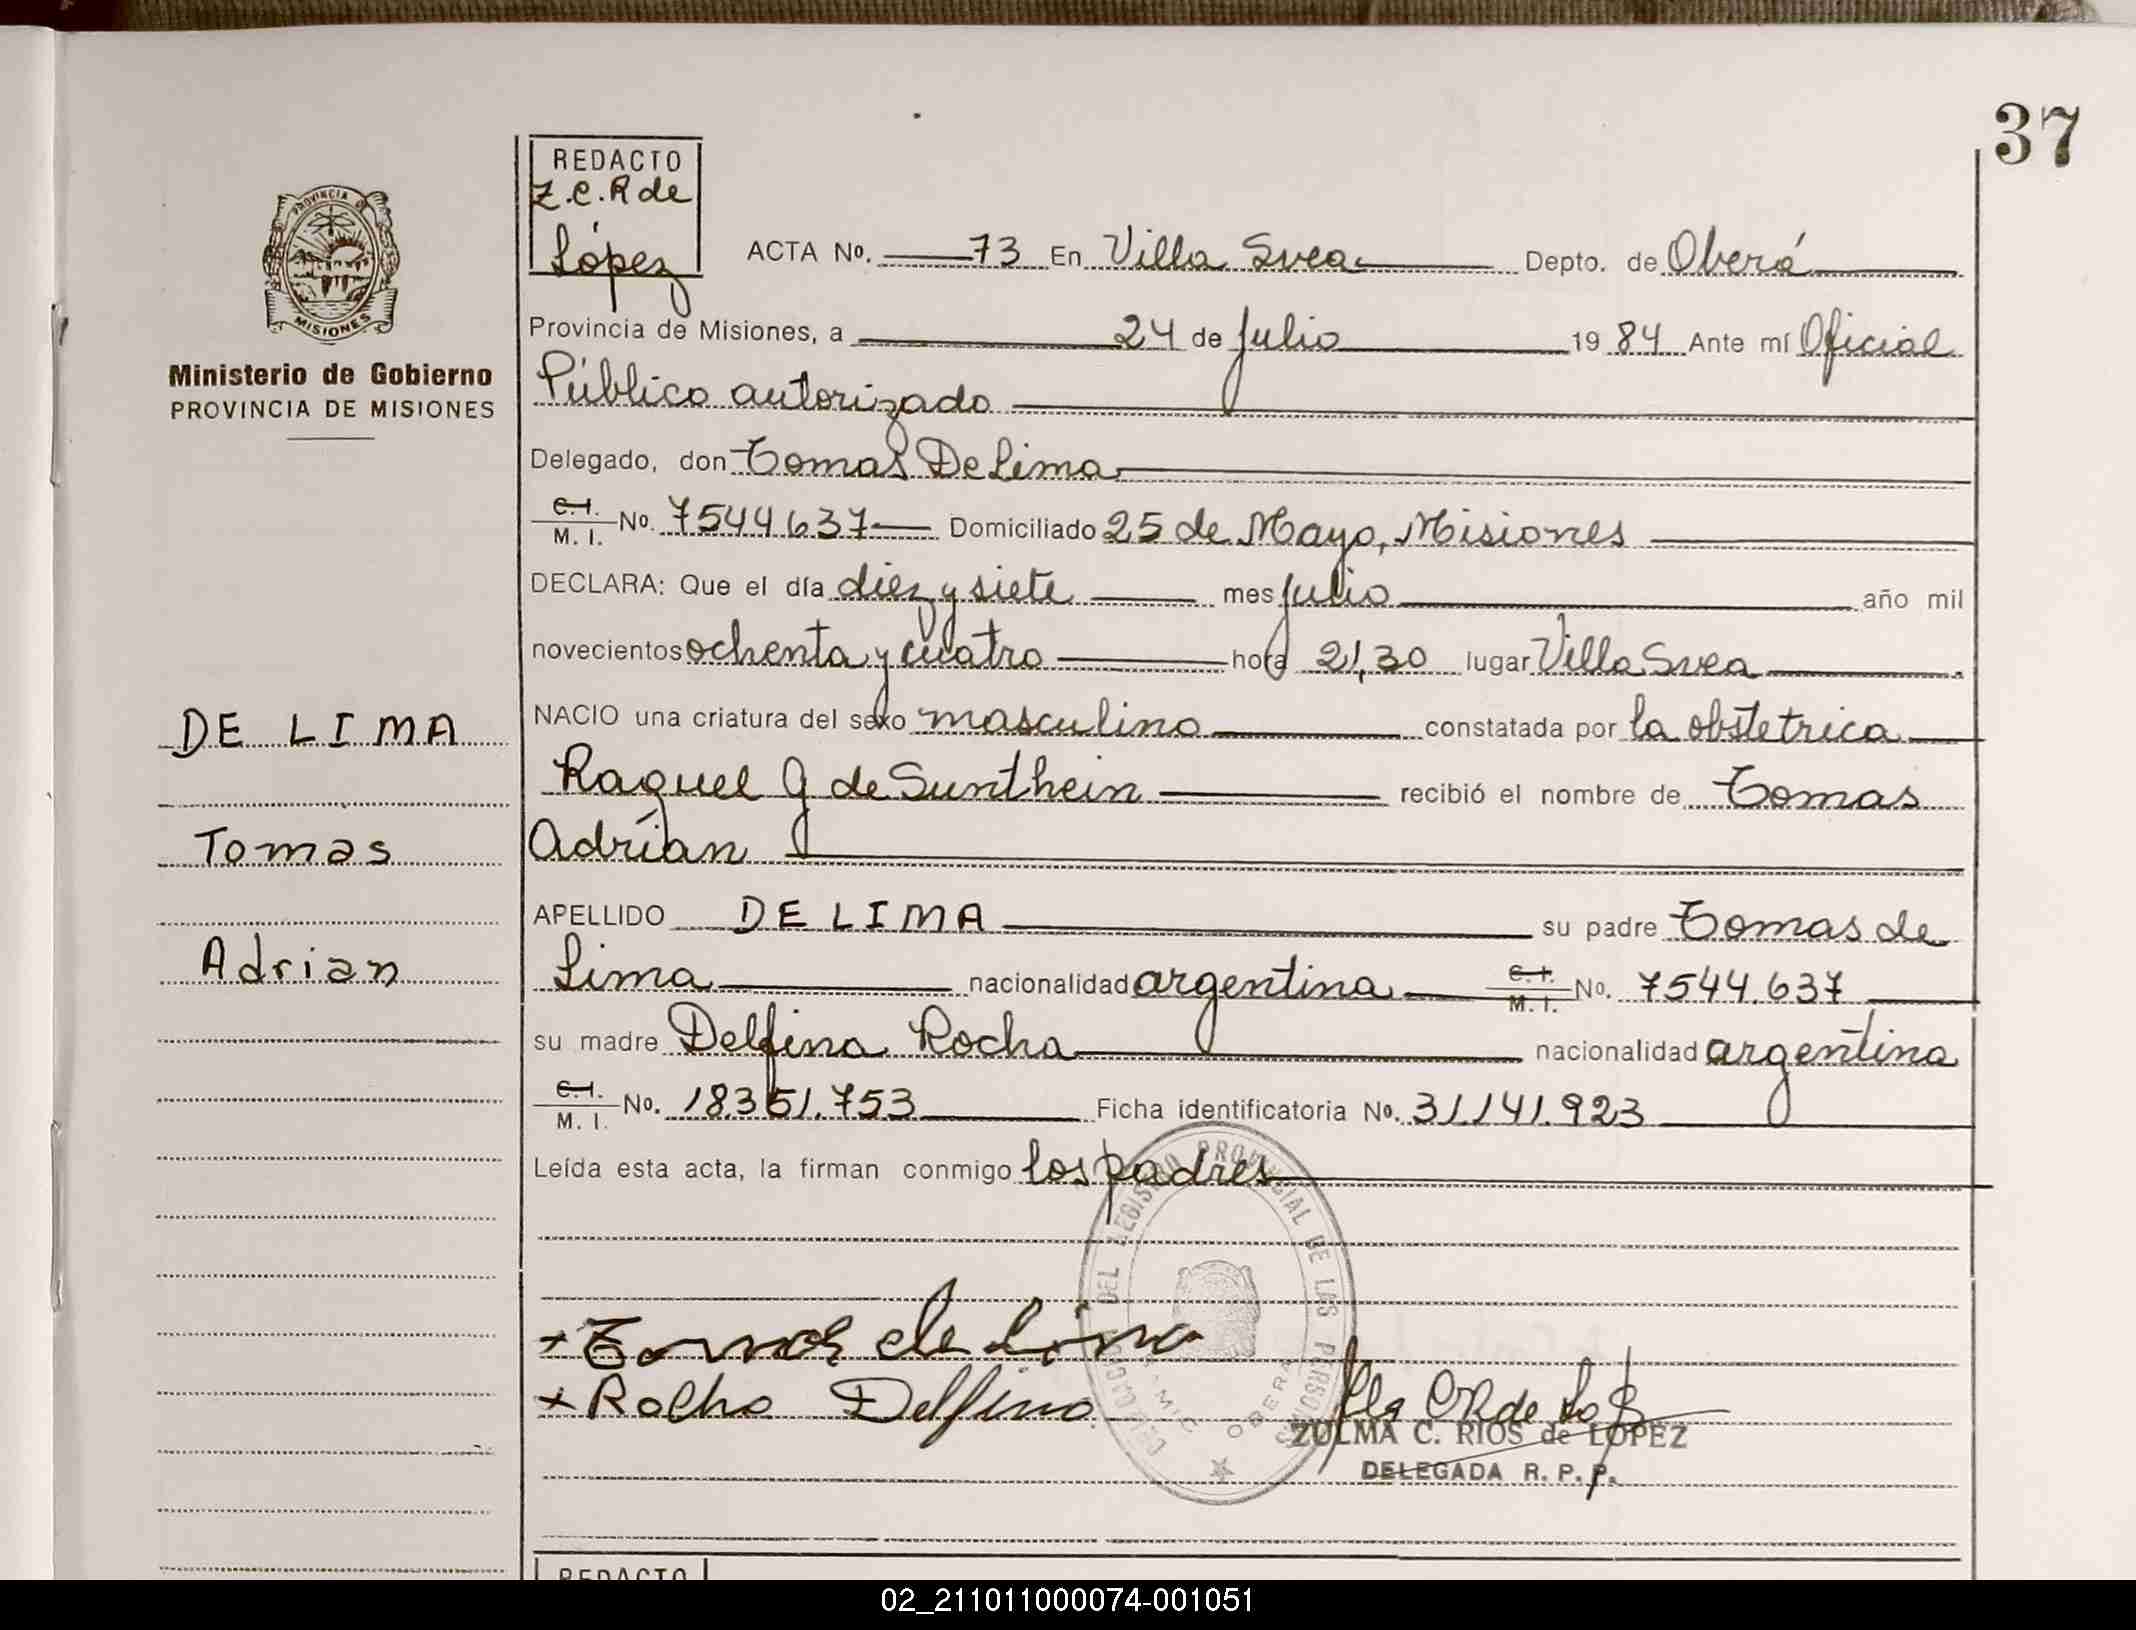 37
REDACTO
Z.C.R de
López
PROVINCIA DE
MISIONES
Ministerio de Gobierno
PROVINCIA DE MISIONES
ACTA No. 73 En Villa Svea Depto. de Oberá
Provincia de Misiones, a 24 de Julio 1984 Ante mí Oficial
Público autorizado
Delegado, don Tomas De Lima
C.I. M. I. No. 7544.637 Domiciliado 25 de Mayo, Misiones
DECLARA: Que el día diez y siete mes Julio año mil
novecientos ochenta y cuatro hora 21,30 lugar Villa Svea
DE LIMA
NACIO una criatura del sexo masculino constatada por la obstetrica
Raquel G de Sunthein recibió el nombre de Tomas
Tomas
Adrían
APELLIDO DE LIMA su padre Tomas de
Adrian
Lima nacionalidad argentina C.I. M. I. No. 7544.637
su madre Delfina Rocha nacionalidad argentina
C.I. M. I. No. 18.351.753 Ficha identificatoria No. 31.141.923
Leída esta acta, la firman conmigo los padres
DEL REGISTRO PROVINCIAL DE LAS PERSONAS
OBERA
+ Tomas de Lima
+ Rocha Delfina
ZULMA C. RIOS de LOPEZ
DELEGADA R. P. P.
REDACTO
02_211011000074-001051